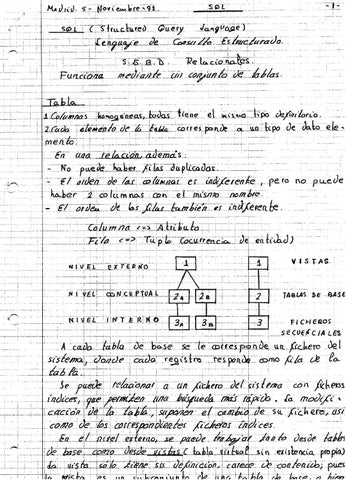 Madrid 5-Noviembre-93 SQL -1-
SQL (Structured Query Language)
Lenguaje de Consulta Estructurado.
S.G.B.D. Relacionales.
Funciona mediante un conjunto de tablas.
Tabla
1. Columnas homogéneas, todas tiene el mismo tipo definitorio.
2. Cada elemento de la tabla corresponde a un tipo de dato ele-
mento.
En una relación, además:
- No puede haber filas duplicadas.
- El orden de las columnas es indiferente, pero no puede
haber 2 columnas con el mismo nombre.
- El orden de las filas también es indiferente.
Columna <=> Atributo
Fila <=> Tupla (ocurrencia de entidad)
NIVEL EXTERNO 1 1 VISTAS.
NIVEL CONCEPTUAL 2A 2B 2 TABLAS DE BASE
NIVEL INTERNO 3A 3B 3 FICHEROS
SECUENCIALES
A cada tabla de base se le corresponde un fichero del
sistema, donde cada registro responde como fila de la
tabla.
Se puede relacionar a un fichero del sistema con ficheros
índices, que permiten una búsqueda más rápida. La modifi-
cación de la tabla, suponen el cambio de su fichero, así
como de los correspondientes ficheros índices.
En el nivel externo, se puede trabajar tanto desde tablas
de base como desde vistas (tabla virtual sin existencia propia)
La vista sólo tiene su definición, carece de contenido, pues
la vista es un subconjunto de una tabla de base, o bien